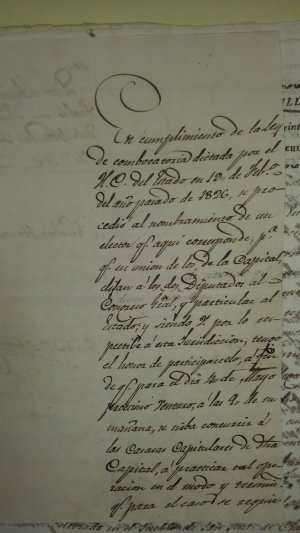 En cumplimiento de la Ley
de combocatoria dictada por el
H.C. del Estado en 12 de Feb.o
del año pasado de 1826, se pro-
cedió al nombramiento de un
elector q.e aquí corresponde, p.a
q.e en union de los de la Capital,
elijan á los dos Diputados al
Congreso Gral, y particular al
Estado; y siendo V. por lo res-
pectibe á esta Jurisdiccion, tengo
el honor de participarcelo, á fin
de q.e para el dia 4 de Mayo
proximo venturo, á las 8 de su
mañana, se sirba concurrir á
las Casas Capitulares de dha
Capital, á practicar tal ope-
racion en el modo y
q.e para el caso se requie